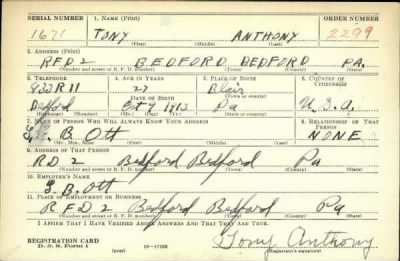 SERIAL NUMBER 1. NAME (Print) ORDER NUMBER
1671 TONY ANTHONY 2299
(First) (Middle) (Last)
2. ADDRESS (Print)
RFD 2 BEDFORD BEDFORD PA.
(Number and street or R. F. D. number) (Town) (County) (State)
3. TELEPHONE 4. AGE IN YEARS 5. PLACE OF BIRTH 6. COUNTRY OF CITIZENSHIP
933R11 27 Blair
DATE OF BIRTH (Town or county)
Bedford 1913 Pa U.S.A.
7. NAME OF PERSON WHO WILL ALWAYS KNOW YOUR ADDRESS 8. RELATIONSHIP OF THAT PERSON
B Ott NONE
(Mr., Mrs., Miss) (First) (Middle) (Last)
9. ADDRESS OF THAT PERSON
RD 2 Bedford Bedford Pa
(Number and street or R. F. D. number) (Town) (County) (State)
10. EMPLOYER'S NAME
B. Ott
11. PLACE OF EMPLOYMENT OR BUSINESS
RFD 2 Bedford Bedford Pa
(Number and street or R. F. D. number) (Town) (County) (State)
I AFFIRM THAT I HAVE VERIFIED ABOVE ANSWERS AND THAT THEY ARE TRUE.
REGISTRATION CARD Tony Anthony
D. S. S. Form 1 (over) 16-17105 (Registrant's signature)